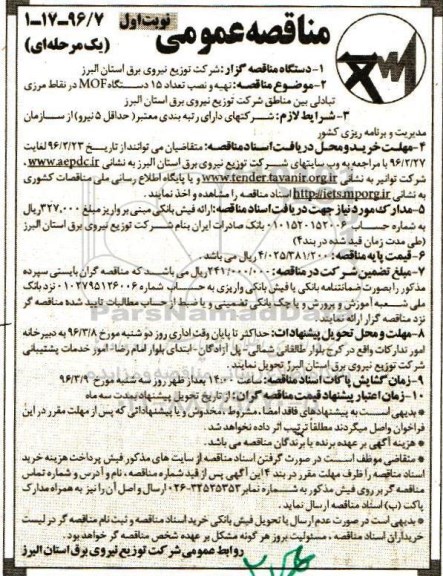 مناقصه عمومی
نوبت اول
۱-۱۷-۹۶/۷
(یک مرحله‌ای)
۱- دستگاه مناقصه گزار: شرکت توزیع نیروی برق استان البرز
۲- موضوع مناقصه: تهیه و نصب تعداد ۱۵ دستگاه MOF در نقاط مرزی
تبادلی بین مناطق شرکت توزیع نیروی برق استان البرز
۳- شرایط لازم: شرکتهای دارای رتبه بندی معتبر( حداقل ۵ نیرو) از سازمان
مدیریت و برنامه ریزی کشور
۴- مهلت خرید و محل دریافت اسناد مناقصه: متقاضیان می توانند از تاریخ ۹۶/۲/۲۳ لغایت
۹۶/۲/۲۷ با مراجعه به وب سایتهای شرکت توزیع نیروی برق استان البرز به نشانی www.aepdc.ir ،
شرکت توانیر به نشانی www.tender.tavanir.org.ir و یا پایگاه اطلاع رسانی ملی مناقصات کشوری
به نشانی http://iets.mporg.ir اسناد مناقصه را مشاهده و اخذ نمایند.
۵- مدارک مورد نیاز جهت دریافت اسناد مناقصه: ارائه فیش بانکی مبنی بر واریز مبلغ ۳۲۷,۰۰۰ ریال
به شماره حساب ۰۱۰۱۵۲۰۱۵۳۰۰۶ بانک صادرات ایران بنام شرکت توزیع نیروی برق استان البرز
(طی مدت زمان قید شده در بند ۴)
۶- قیمت پایه مناقصه: ۴/۰۲۵/۳۸۱/۲۰۰ ریال می باشد.
۷- مبلغ تضمین شرکت در مناقصه: ۲۴۱/۰۰۰/۰۰۰ ریال می باشد که مناقصه گران بایستی سپرده
مذکور را بصورت ضمانتنامه بانکی یا فیش بانکی واریزی به حساب شماره ۰۱۰۲۷۹۵۱۲۶۰۰۶ نزد بانک
ملی شعبه آموزش و پرورش و یا چک بانکی تضمینی و یا ضبط از حساب مطالبات تایید شده مناقصه گر
نزد مناقصه گزار ارائه نمایند.
۸- مهلت و محل تحویل پیشنهادات: حداکثر تا پایان وقت اداری روز دو شنبه مورخ ۹۶/۳/۸ به دبیرخانه
امور تدارکات واقع در کرج بلوار طالقانی شمالی- پل آزادگان- ابتدای بلوار امام رضا- امور خدمات پشتیبانی
شرکت توزیع نیروی برق استان البرز تحویل نمایند.
۹- زمان گشایش پاکات اسناد مناقصه: ساعت ۱۴:۰۰ بعداز ظهر روز سه شنبه مورخ ۹۶/۳/۹
۱۰- زمان اعتبار پیشنهاد قیمت مناقصه گران: از تاریخ تحویل پیشنهاد بمدت سه ماه
* بدیهی است به پیشنهادهای فاقد امضا، مشروط، مخدوش و یا پیشنهاداتی که پس از مهلت مقرر در این
فراخوان واصل میگردند مطلقا ترتیب اثر داده نخواهد شد.
* هزینه آگهی بر عهده برنده یا برندگان مناقصه می باشد.
* متقاضی موظف است در صورت گرفتن اسناد مناقصه از سایت های مذکور فیش پرداخت هزینه خرید
اسناد مناقصه را ظرف مهلت مقرر در بند ۴ این آگهی پس از قید شماره مناقصه ، نام و آدرس و شماره تماس
مناقصه گر بر روی فیش مذکور به شماره نمابر ۳۲۵۳۵۳۵۳-۰۲۶ ارسال و اصل آن را نیز به همراه مدارک
پاکت (ب) اسناد مناقصه ارسال نماید.
* بدیهی است در صورت عدم ارسال یا تحویل فیش بانکی خرید اسناد مناقصه و ثبت نام مناقصه گر در لیست
خریداران اسناد مناقصه ، مسئولیت بروز هر گونه مشکل بر عهده شخص مناقصه گر خواهد بود.
روابط عمومی شرکت توزیع نیروی برق استان البرز
ParsNamadData